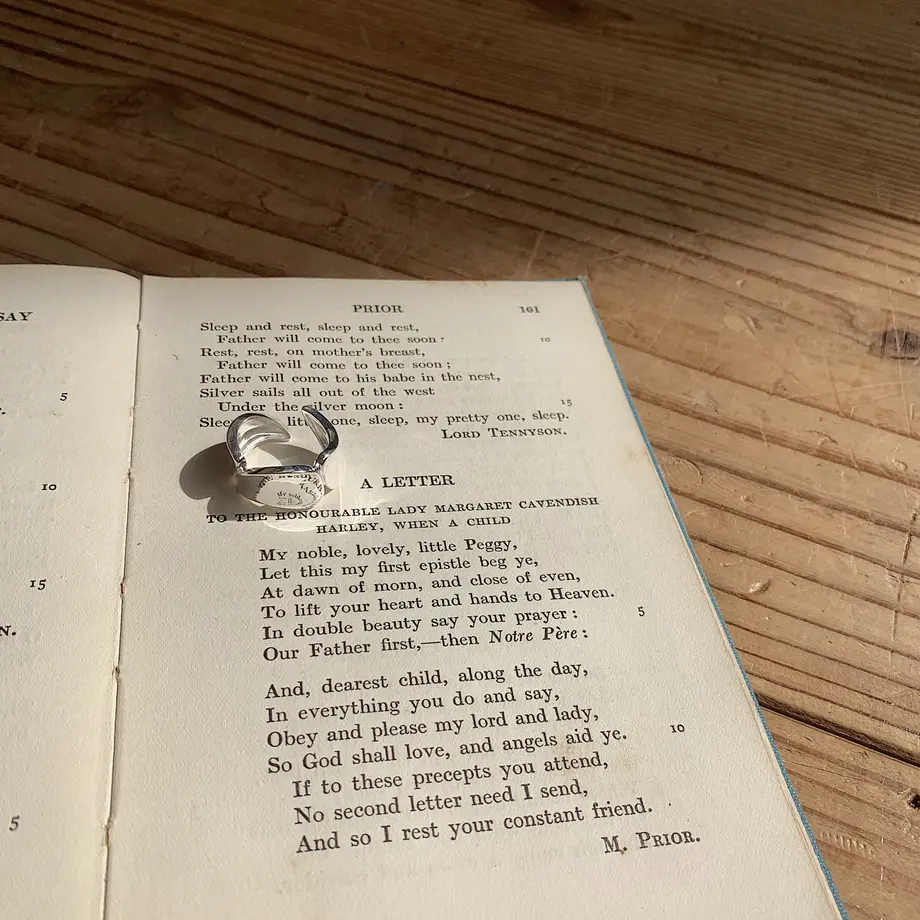 SAY
5
10
15
N.
5
PRIOR 101
Sleep and rest, sleep and rest,
Father will come to thee soon: 10
Rest, rest, on mother's breast,
Father will come to thee soon;
Father will come to his babe in the nest,
Silver sails all out of the west
Under the silver moon: 15
one, sleep, my pretty one, sleep.
LORD TENNYSON.
A LETTER
TO THE HONOURABLE LADY MARGARET CAVENDISH
HARLEY, WHEN A CHILD
MY noble, lovely, little Peggy,
Let this my first epistle beg ye,
At dawn of morn, and close of even,
To lift your heart and hands to Heaven.
In double beauty say your prayer: 5
Our Father first,—then Notre Père:
And, dearest child, along the day,
In everything you do and say,
Obey and please my lord and lady,
So God shall love, and angels aid ye. 10
If to these precepts you attend,
No second letter need I send,
And so I rest your constant friend.
M. PRIOR.